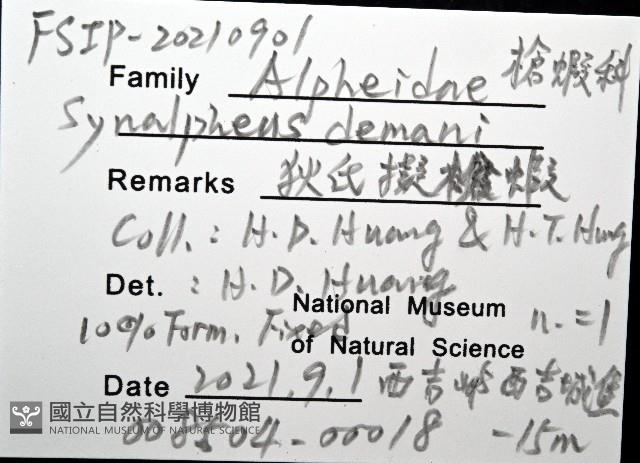 FSIP-20210901
Family Alpheidae 槍蝦科
Synalpheus demani
Remarks 狄氏擬槍蝦
Coll. : H.D. Huang & H.T. Hung
Det. : H.D. Huang
National Museum n. = 1
10% Form. Fixed
of Natural Science
Date 2021.9.1 西吉嶼西吉
國立自然科學博物館
NATIONAL MUSEUM OF NATURAL SCIENCE
-00018 -15m